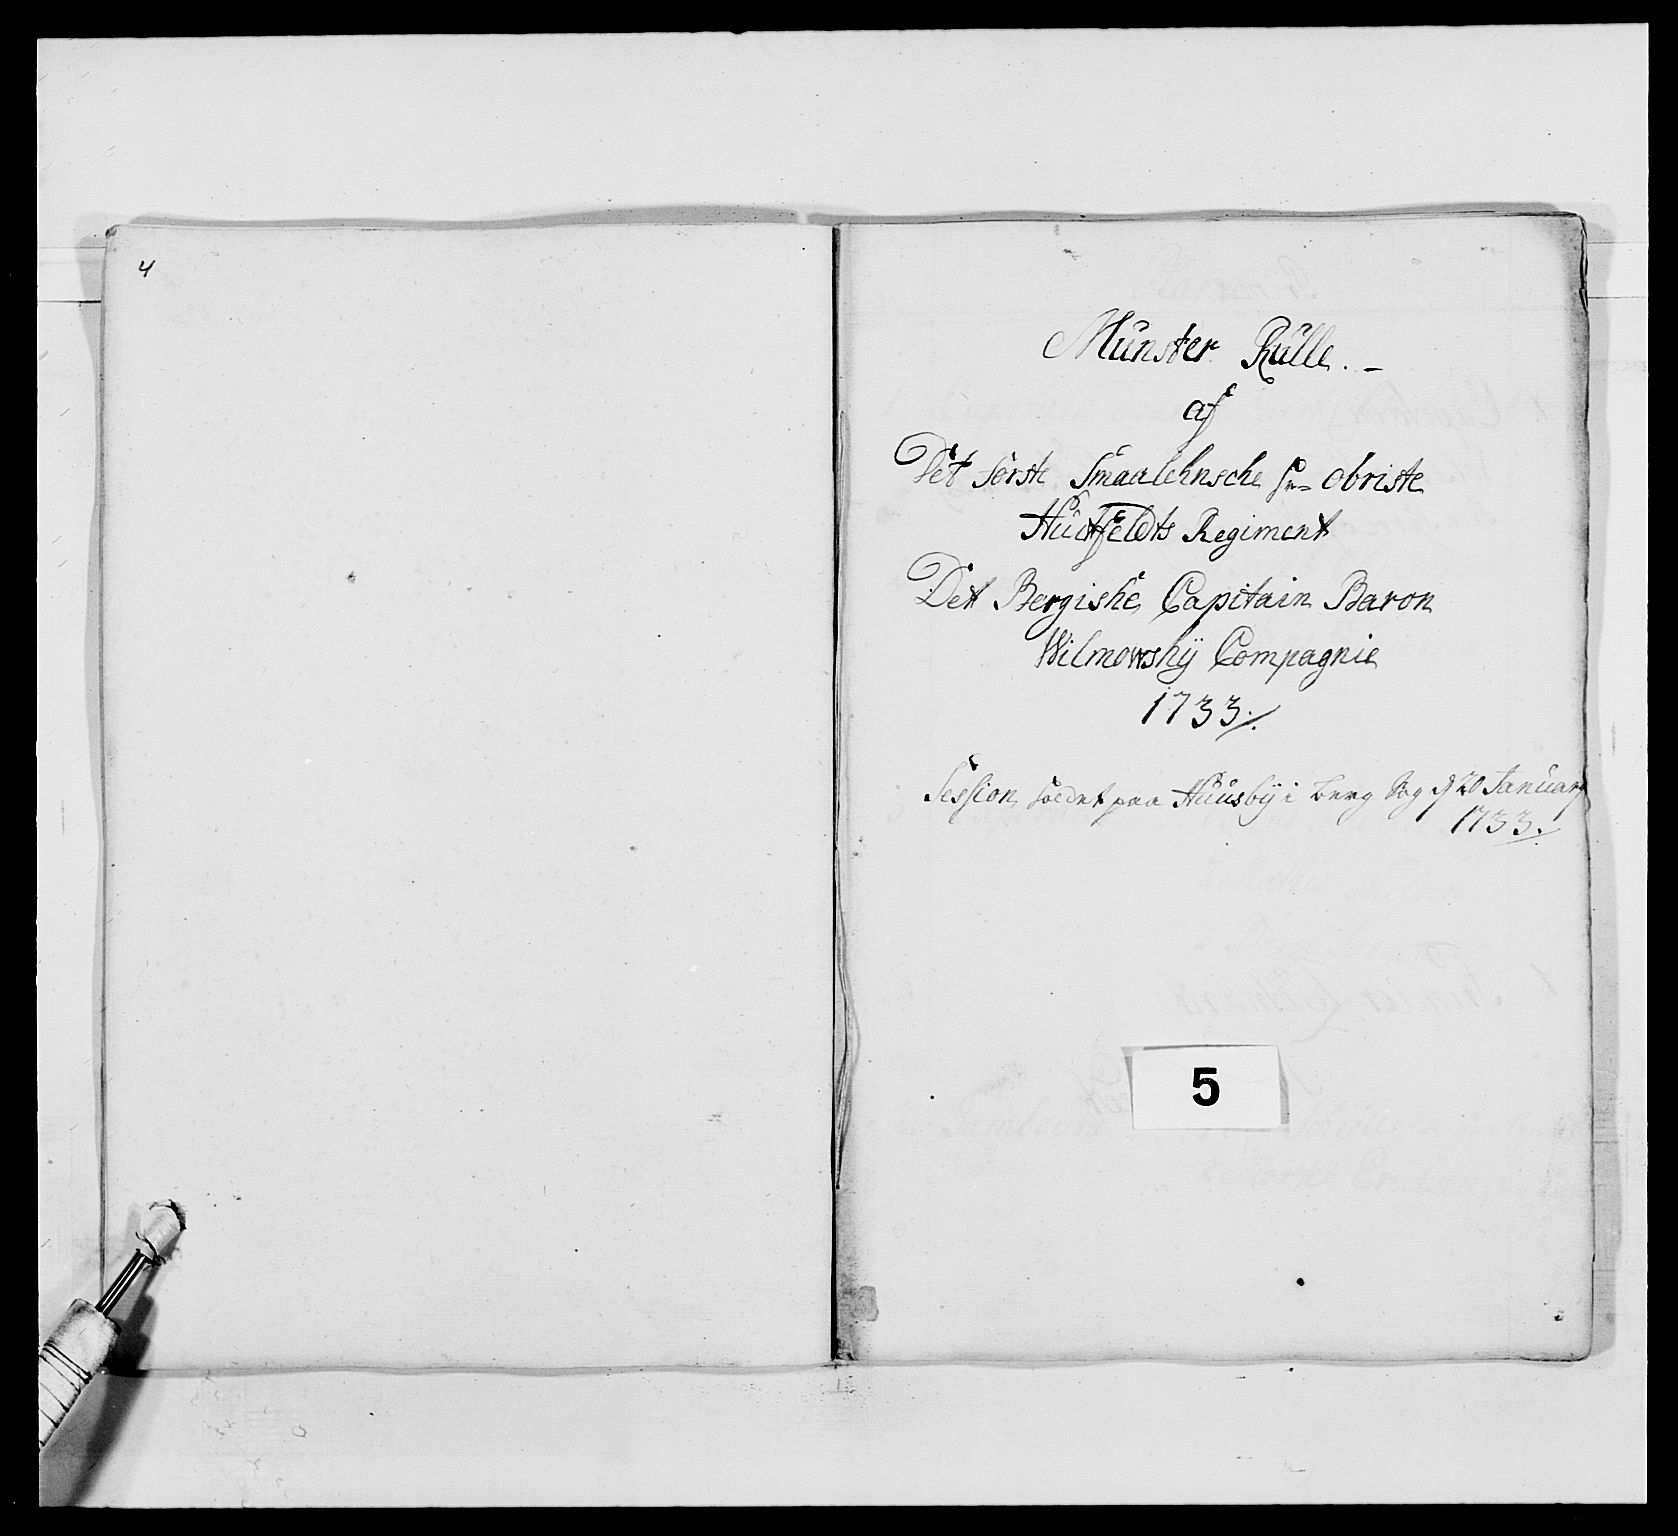 4
Münster Rulle. -
af
Det første Smaalehnsche hr= obriste
Huitfeldts Regiment
Det Bergiske Capitain Baron
Wilmowskÿ Compagnie
1733./.
Session holdet paa Huusbÿ i Berg Sog d 20 Januarÿ
1733./.
5